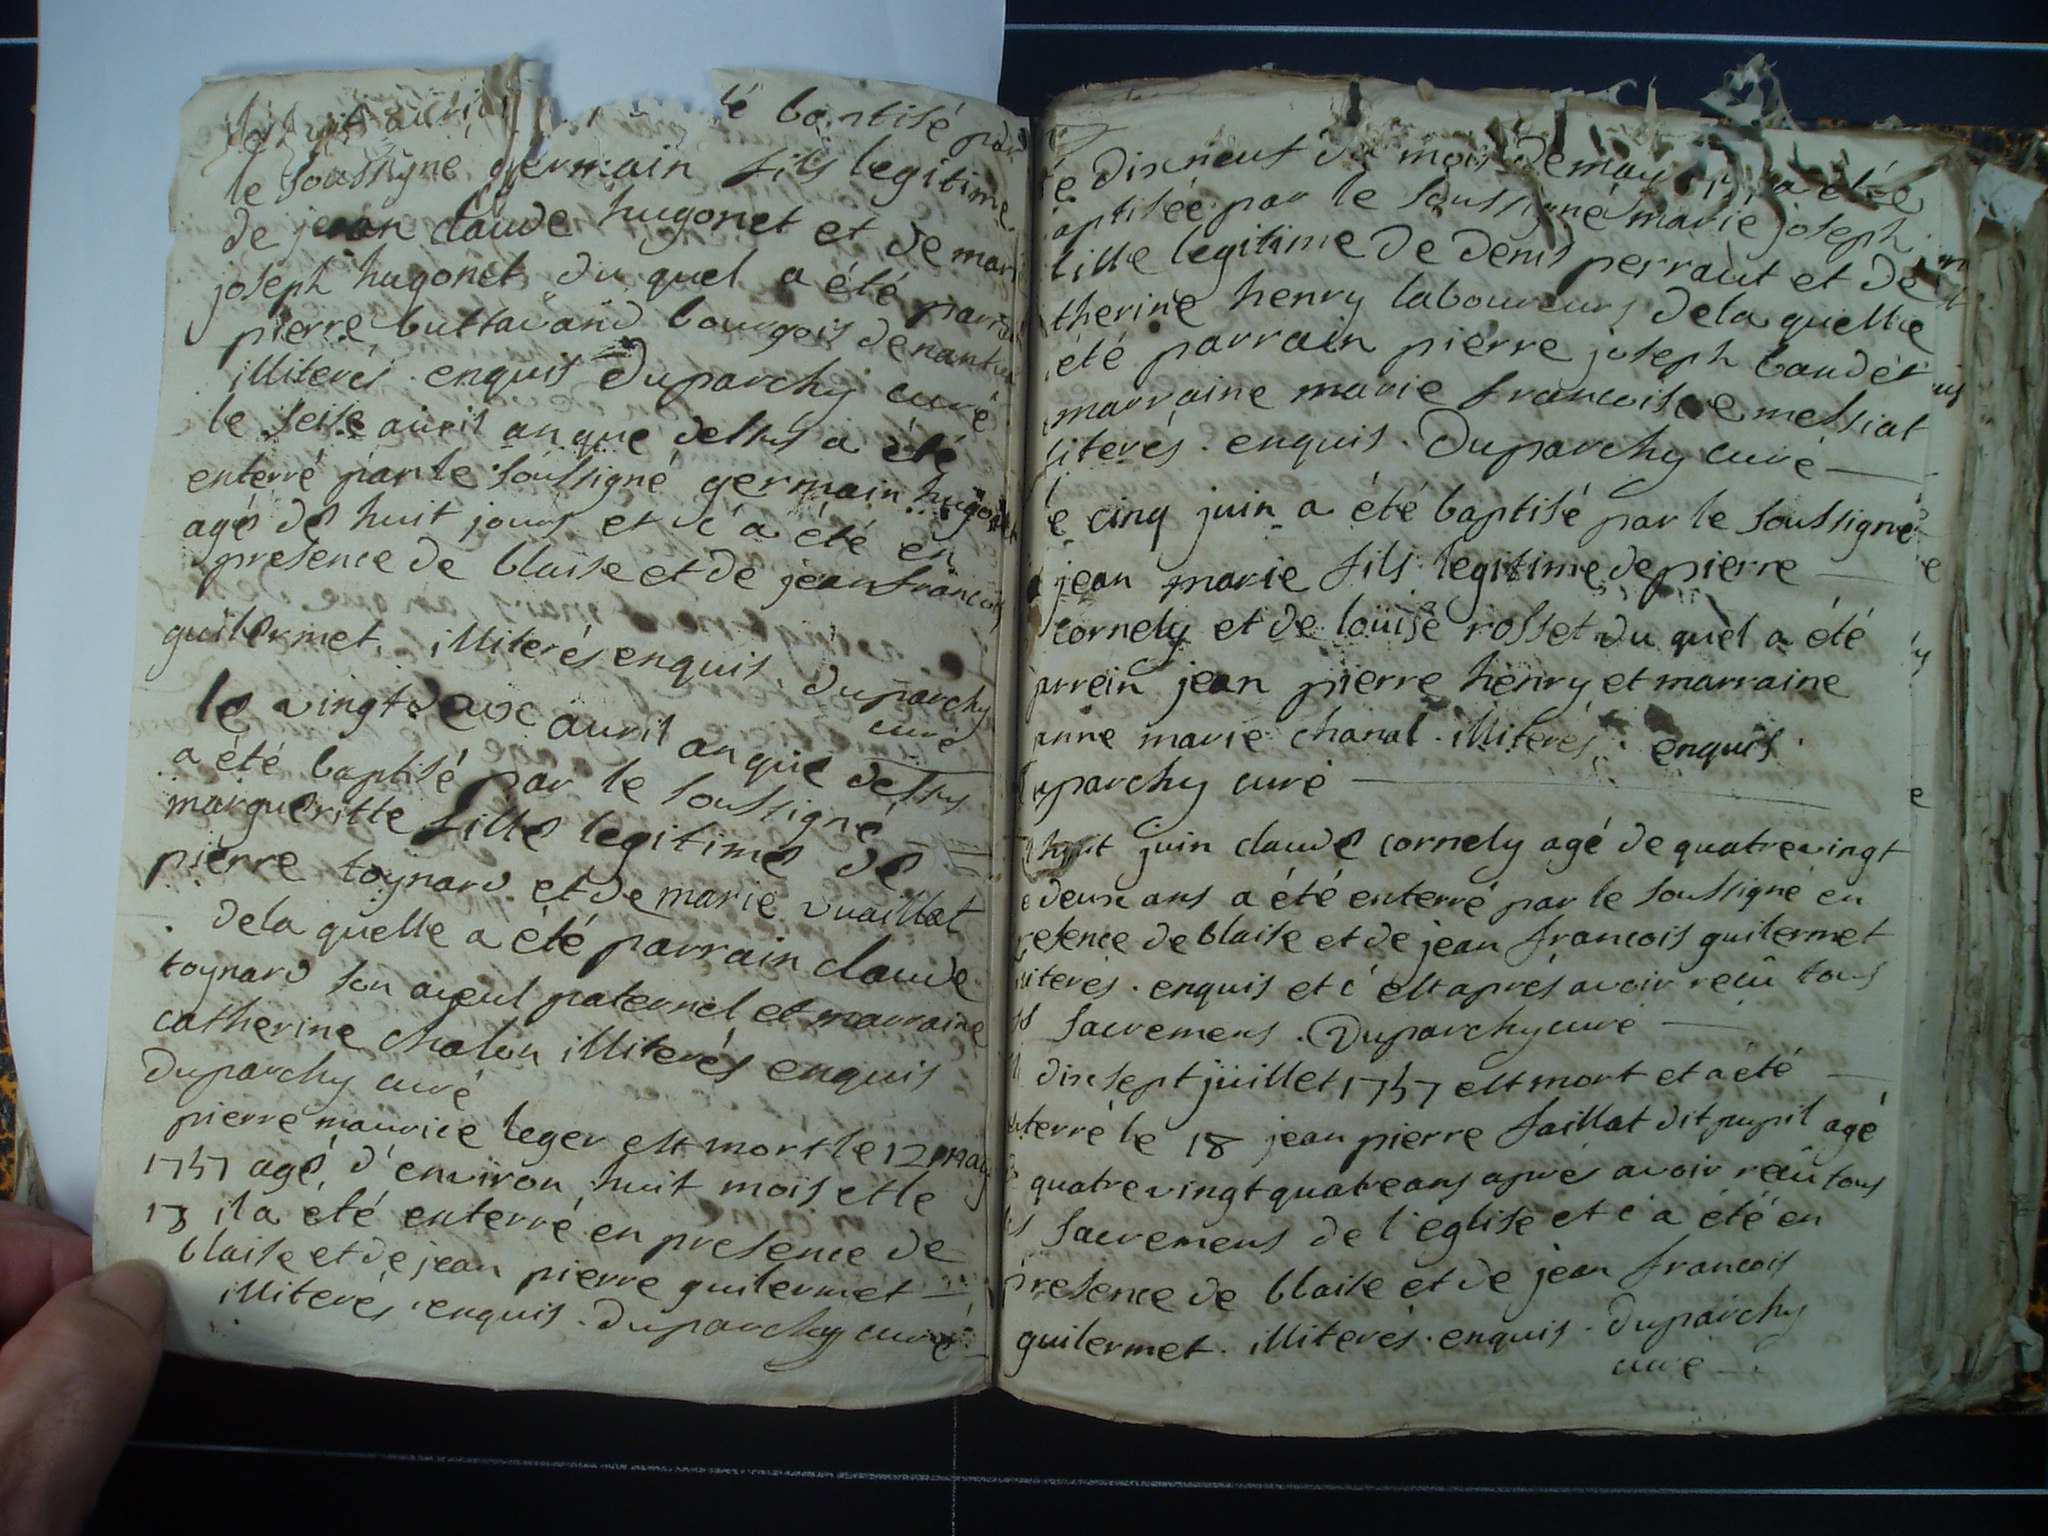 le huit avril té baptisé par
le soussigné germain fils legitime
de jean claude hugonet et de mari
joseph hugonet du quel a été parrai
pierre buttavand bourgois de nantua
illiterés . enquis Duparchy curé
le seise avril an que dessus a été
enterré par le soussigné germain hugonet
agé de huit jours et c'a été en
presence de blaise et de jean francois
guilermet . illiterés enquis . duparchy
curé
le vingt deux avril an que dessus
a été baptisé par le soussigné
margueritte fille legitime de
pierre toynard et de marie vuaillat
dela quelle a été parrain claude
toynard son aieul paternel et marraine
catherine chalon illiterés enquis
Duparchy curé
pierre maurice leger est mort le 12 may
1757 agé d'environ huit mois et le
13 il a été enterré en presence de
blaise et de jean pierre guilermet
illiterés . enquis . duparchy curé
e dix neuf du mois de may a été
aptisée par le soussigné marie joseph
fille legitime de denis perraut et de
therine henry laboureurs dela quelle
été parrain pierre joseph baudét
marraine marie francoise messiat
literés . enquis . Duparchy curé
le cinq juin a été baptisé par le soussigné
jean marie fils legitime de pierre
cornely et de louise rosset du quel a été
arrein jean pierre henry et marraine
anne marie chanal . illiterés . enquis .
uparchy curé
huit juin claude cornely agé de quatre vingt
e deux ans a été enterré par le soussigné en
resence de blaise et de jean francois guilermet
literés . enquis et c'est aprés avoir recû tous
es sacremens . Duparchy curé
dix sept juillet 1757 est mort et a été
nterré le 18 jean pierre saillat dit pupil agé
de quatre vingt quatre ans aprés avoir recû tous
les sacremens de l'église et c'a été en
presence de blaise et de jean francois
guilermet . illiterés . enquis . duparchy
curé